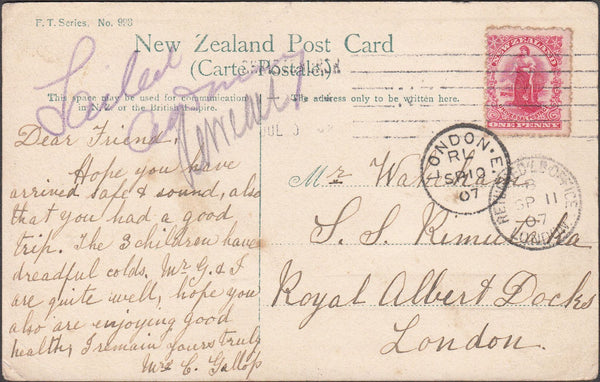 F. T. Series. No. 998
New Zealand Post Card
(Carte Postale.)
This space may be used for communication
in N.Z. or the British Empire.
The address only to be written here.
Sailed
Dear Friend,
Hope you have
arrived safe & sound, also
that you had a good
trip. The 3 children have
dreadful colds. Mr G. & I
are quite well, hope you
also are enjoying good
health, I remain yours truly
Mrs C. Gallop
Mr
S. S.
Royal Albert Docks
London.
NEW ZEALAND
ONE PENNY
LONDON. E.
RL
SP 10
07
SP 11
07
LONDON